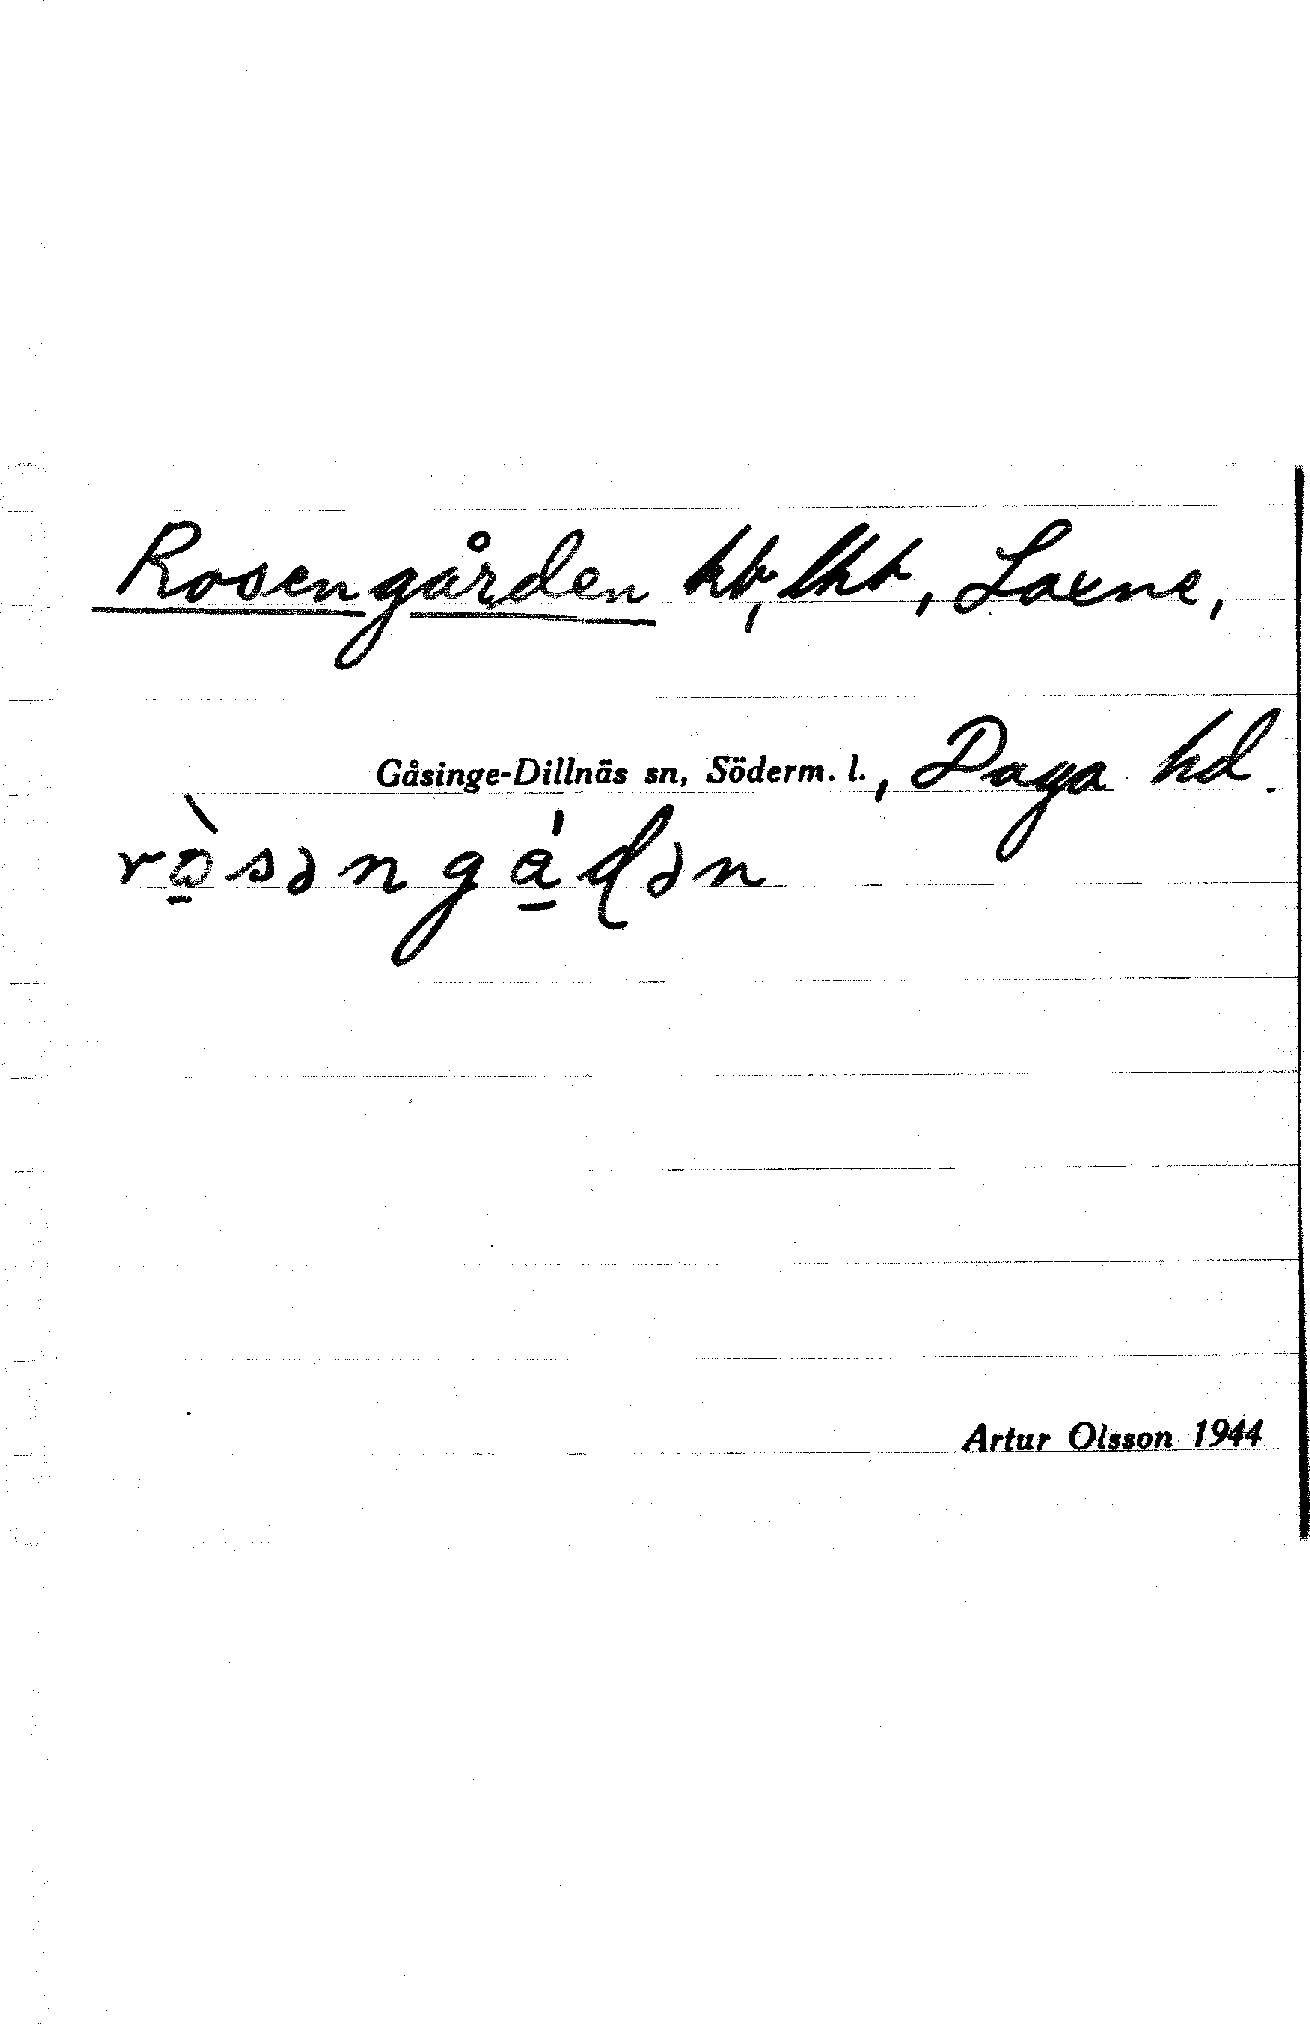 Rosengården hb, lht, Laxne,
Gåsinge-Dillnäs sn, Söderm. l., Daga hd.
rò̱səngá̱ɖən
Artur Olsson 1944